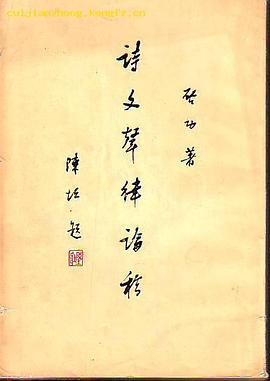 cuijiahehong.kongfz.cn
啓功著
詩文聲律論稿
陳垣題